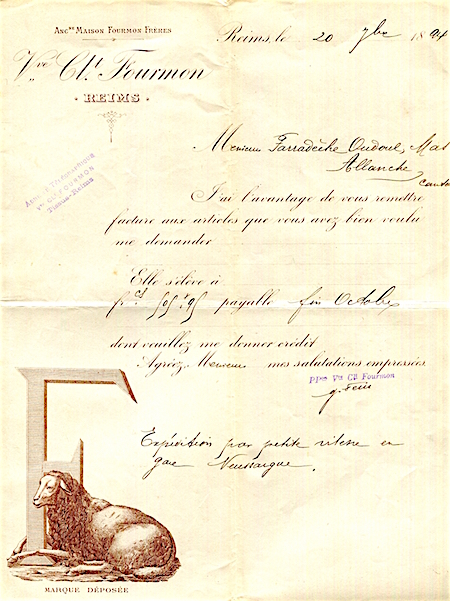 Anc.ne Maison Fourmon Frères
Vve Ch. Fourmon
REIMS
Reims, le 20 7bre 1894
Monsieur Farradèche Oudoul, Mas
Allanche
J'ai l'avantage de vous remettre
facture aux articles que vous avez bien voulu
me demander
Elle s'élève à
fcs 505 f 95 payable fin Octobre
dont veuillez me donner crédit
Agréez Monsieur mes salutations empressées
PPon Vve Ch. Fourmon
Expédition par petite vitesse en
gare Neussargue.
MARQUE DÉPOSÉE